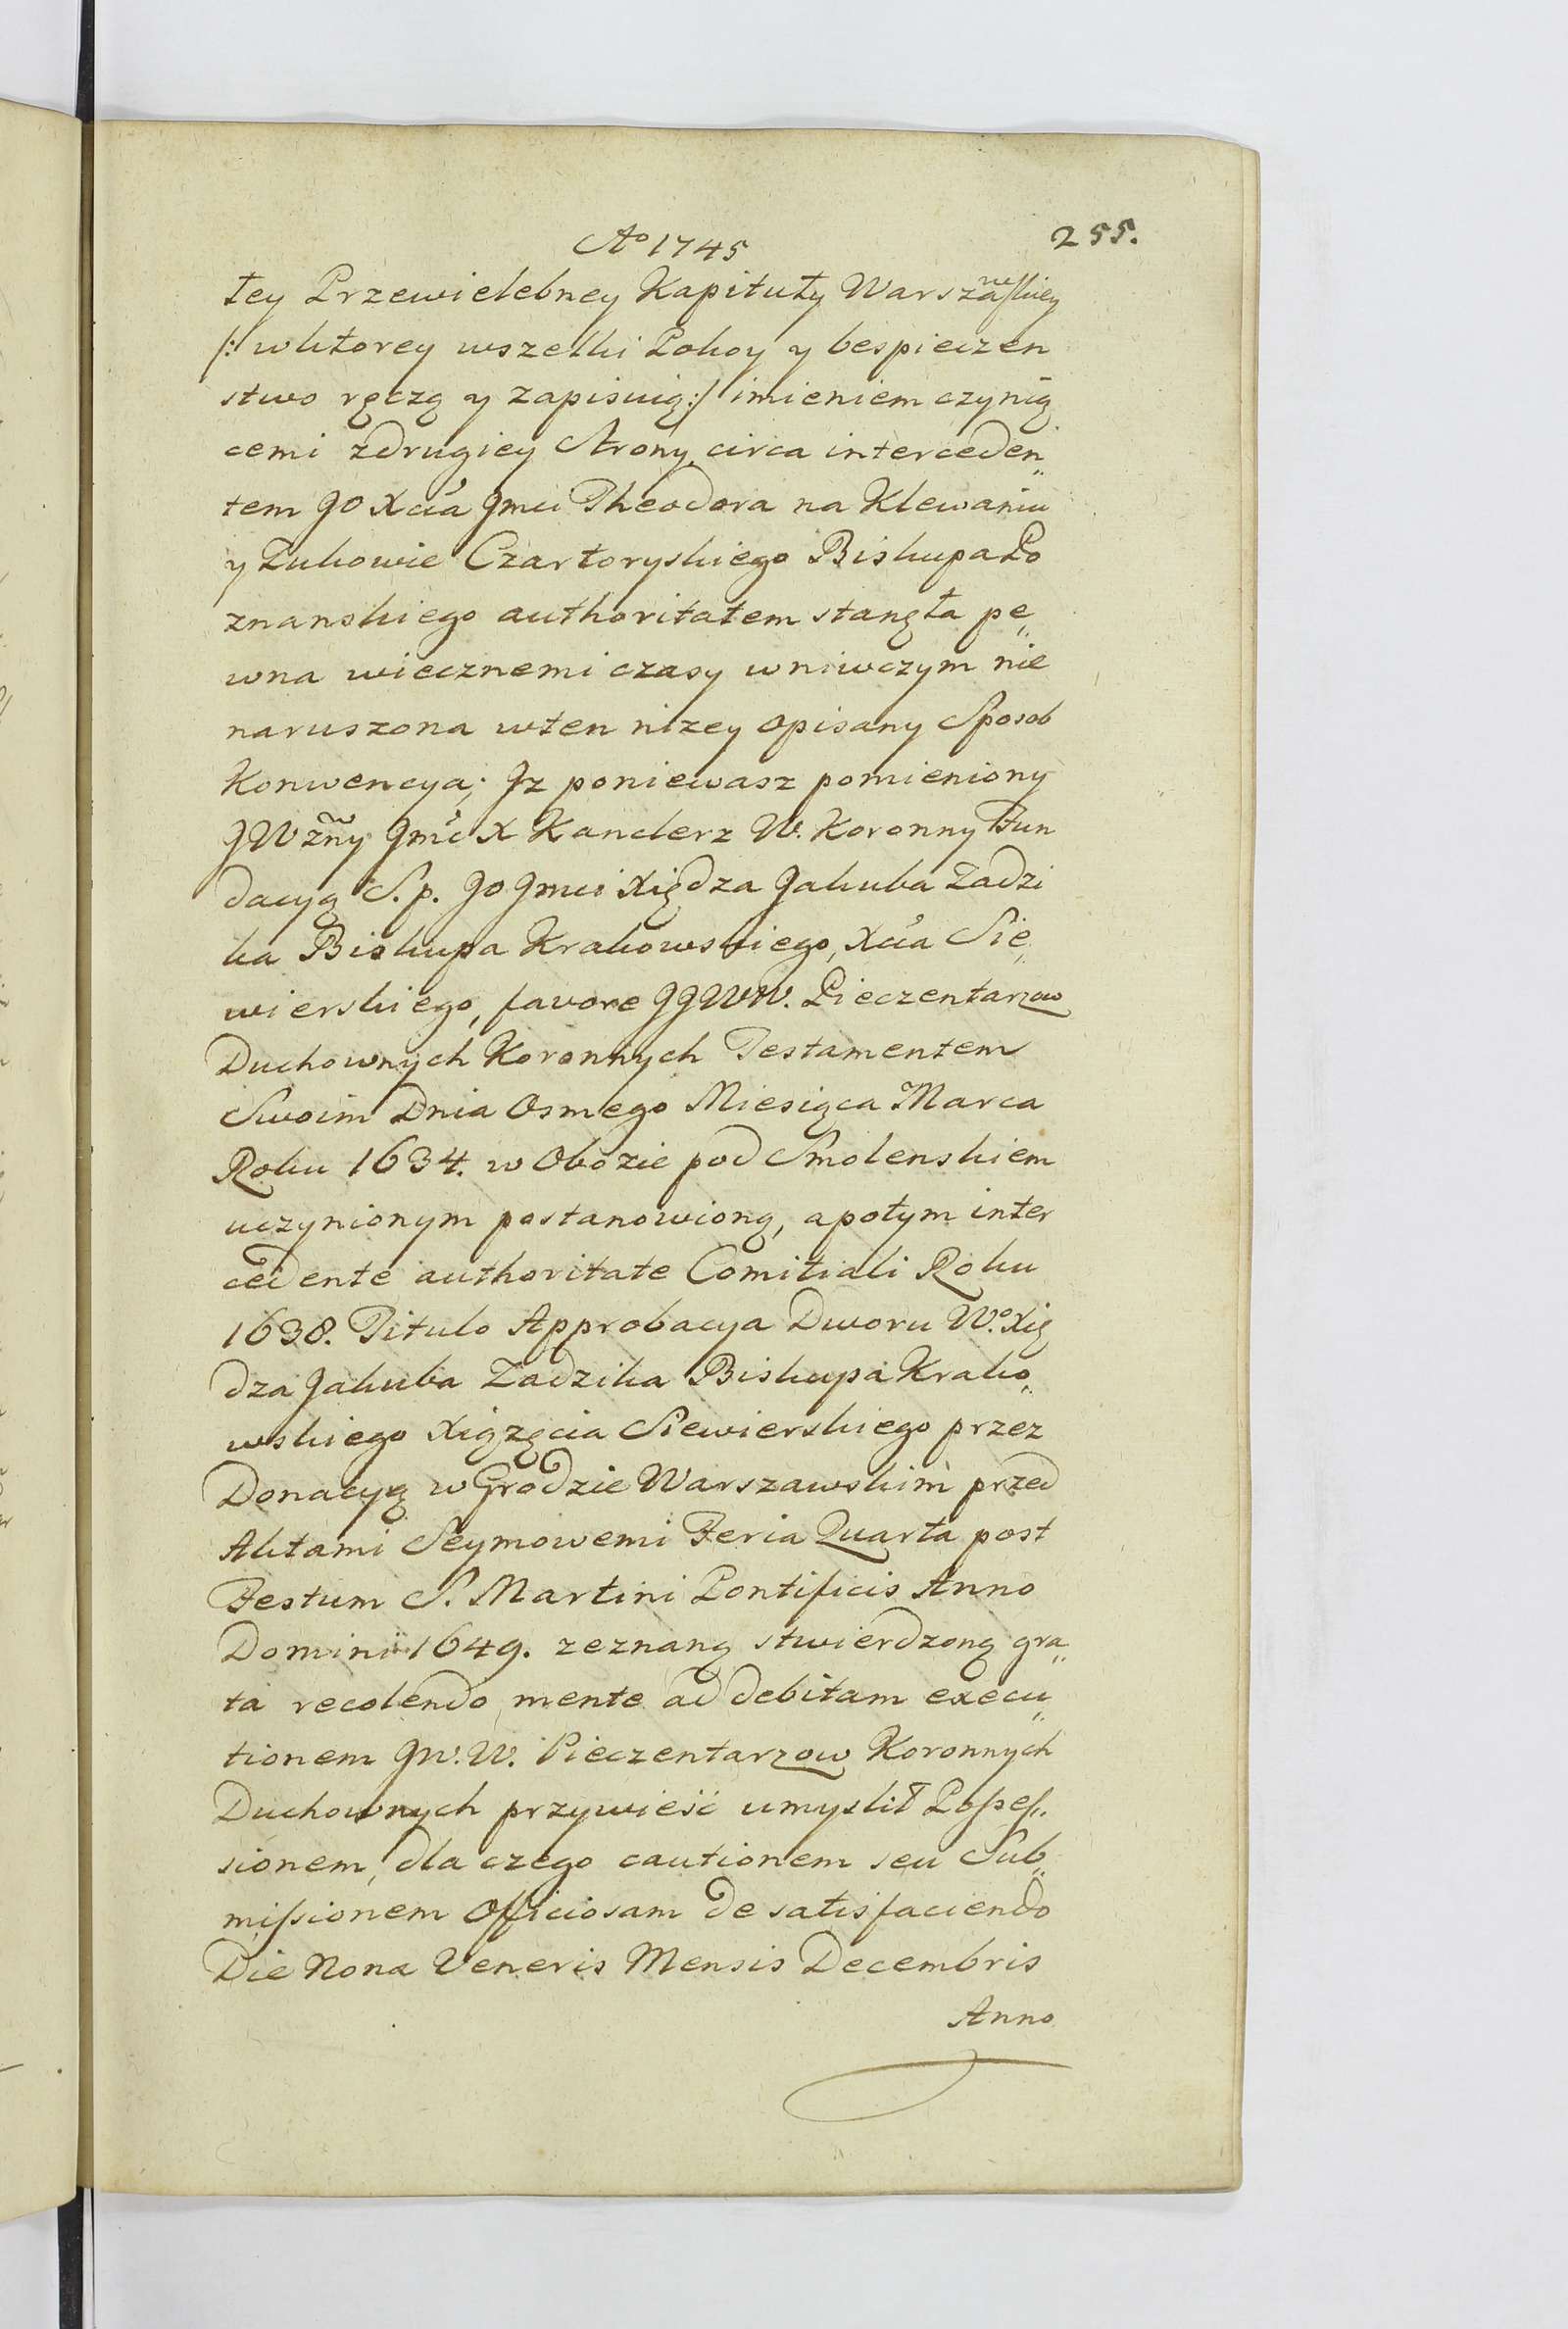 Aº 1745
255.
tey Przewielebney Kapituły Warszawskiey
/: wktorey wszelki Pokoy y bespieczen
stwo ręczą y zapisuią :/ imieniem czynią
cemi zdrugiey Strony, circa interceden„
tem JO Xcia Jmci Theodora na Klewaniu
y Zukowie Czartoryskiego Biskupa Po
znanskiego authoritatem stanęła pe„
wna wiecznemi czasy wniwczym nie
naruszona wten nizey opisany Sposob
Konwencya; Jz poniewasz pomieniony
JWzny Jmć X Kanclerz W. Koronny Fun
dacyą S. p. JO Jmci Xiędza Jakuba Zadzi
ka Biskupa Krakowskiego, Xcia Sie„
wierskiego, favore JJWW. Pieczentarzow
Duchownych Koronnych Testamentem
Swoim Dnia Osmego Miesiąca Marca
Roku 1634. w Obozie pod Smolenskiem
uczynionym postanowioną, apotym inter
cedente authoritate Comitiali Roku
1638. Titulo Approbacya Dworu Wº. Xię
dza Jakuba Zadzika Biskupa Krako„
wskiego Xiązęcia Siewierskiego przez
Donacyą w Grodzie Warszawskim przed
Aktami Seymowemi Feria Quarta post
Festum S. Martini Pontificis Anno
Domini 1649. zeznaną stwierdzoną gra„
ta recolendo mente ad debitam execu„
tionem JW. W. Pieczentarzow Koronnych
Duchownych przywieść umyslił Posses„
sionem, dla czego cautionem seu Sub„
missionem Officiosam de satisfaciendo
Die Nona Veneris Mensis Decembris
Anno